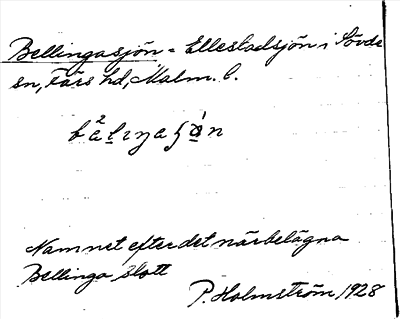 Bellingasjön = Ellestadsjön i Sövde
sn, Färs hd, Malm. l.
Namnet efter det närbelägna
Bellinga slott
P. Holmström 1928